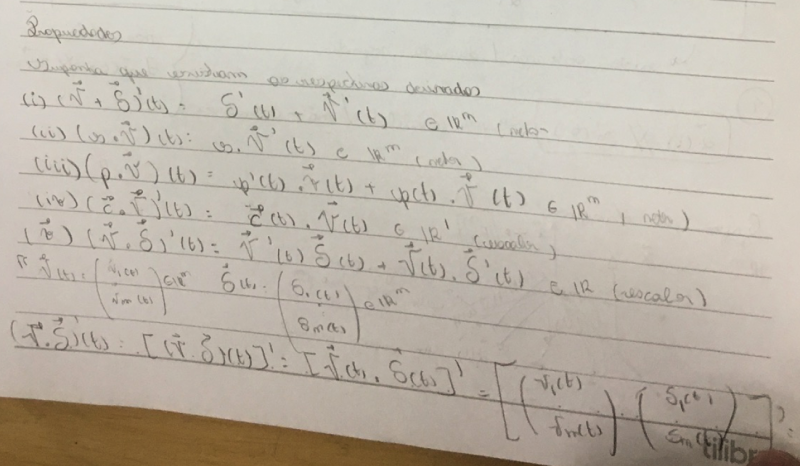 Propriedades
Suponha que existam as respectivas derivadas
(i) (v⃗ + s⃗)'(t) = s⃗'(t) + v⃗'(t) ∈ ℝᵐ (vetor
(ii) (v⃗)(t): v⃗'(t) ∈ ℝᵐ (vetor)
(iii) (φ.v⃗)(t) = φ'(t).v⃗(t) + φ(t).v⃗(t) ∈ ℝᵐ, vetor)
(iv) (c⃗.v⃗)'(t) = c⃗(t).v⃗(t) ∈ ℝ' (escalar)
(v) (v⃗.s⃗)'(t) = v⃗'(t) s⃗(t) + v⃗(t).s⃗'(t) ∈ ℝ (escalar)
v⃗(t) = (v₁(t) vₘ(t)) ∈ ℝᵐ s⃗(t) = (s₁(t) sₘ(t)) ∈ ℝᵐ
(v⃗.s⃗)'(t) = [(v⃗.s⃗)(t)]' = [v⃗(t).s⃗(t)]' = [(v₁(t) vₘ(t)) . (s₁(t) sₘ(t))]' =
tilibr